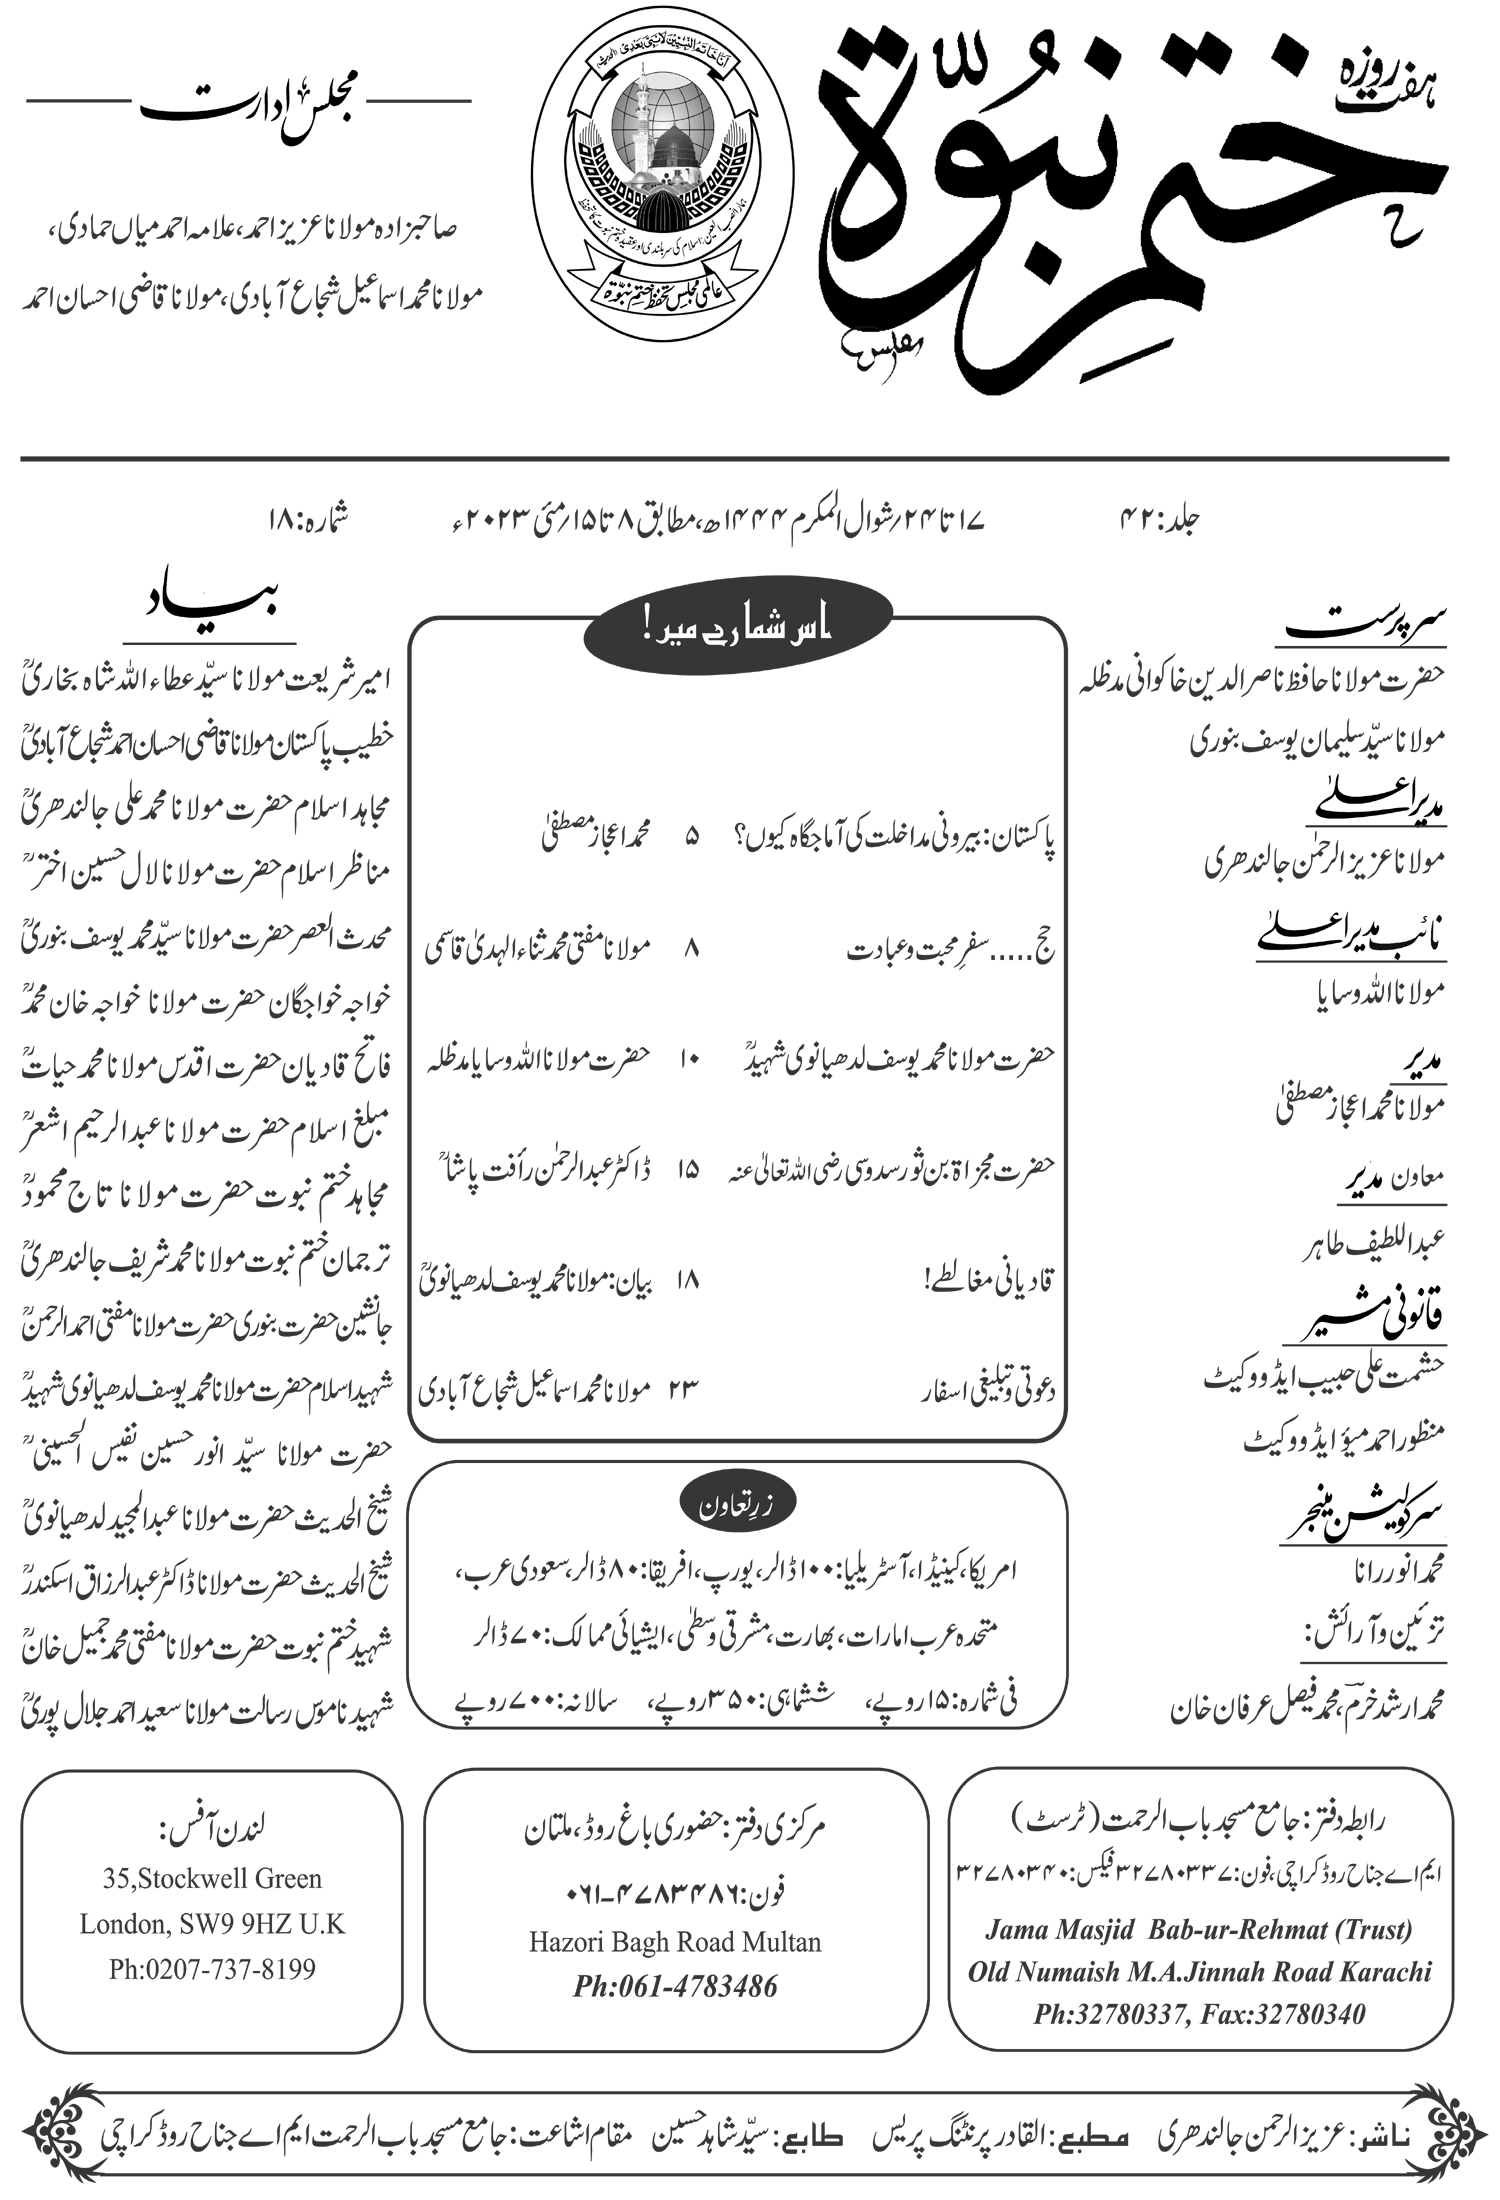 ہفت روزہ
ختم نبوۃ
انا خاتم النبیین لا نبی بعدی (الحدیث)
عالمی مجلس تحفظ ختم نبوۃ
مجلس ادارت
صاحبزادہ مولانا عزیز احمد، علامہ احمد میاں حمادی،
مولانا محمد اسماعیل شجاع آبادی، مولانا قاضی احسان احمد
جلد: ۴۲
۱۷ تا ۲۴؍ شوال المکرم ۱۴۴۴ھ، مطابق ۸ تا ۱۵؍ مئی ۲۰۲۳ء
شمارہ: ۱۸
سرپرست
حضرت مولانا حافظ ناصر الدین خاکوانی مدظلہ
مولانا سیّد سلیمان یوسف بنوری
مدیر اعلیٰ
مولانا عزیز الرحمٰن جالندھری
نائب مدیر اعلیٰ
مولانا اللہ وسایا
مدیر
مولانا محمد اعجاز مصطفیٰ
معاون مدیر
عبداللطیف طاہر
قانونی مشیر
حشمت علی حبیب ایڈووکیٹ
منظور احمد میؤ ایڈووکیٹ
سرکولیشن منیجر
محمد انور رانا
تزئین و آرائش:
محمد ارشد خرم، محمد فیصل عرفان خان
اس شمارے میں!
پاکستان: بیرونی مداخلت کی آماجگاہ کیوں؟ ۵ محمد اعجاز مصطفیٰ
حج..... سفرِ محبت و عبادت ۸ مولانا مفتی محمد ثناء الہدیٰ قاسمی
حضرت مولانا محمد یوسف لدھیانوی شہیدؒ ۱۰ حضرت مولانا اللہ وسایا مدظلہ
حضرت مجزاۃ بن ثور سدوسی رضی اللہ تعالیٰ عنہ ۱۵ ڈاکٹر عبدالرحمٰن رأفت پاشاؒ
قادیانی مغالطے! ۱۸ بیان: مولانا محمد یوسف لدھیانویؒ
دعوتی و تبلیغی اسفار ۲۳ مولانا محمد اسماعیل شجاع آبادی
زرِ تعاون
امریکا، کینیڈا، آسٹریلیا: ۱۰۰ ڈالر، یورپ، افریقا: ۸۰ ڈالر، سعودی عرب،
متحدہ عرب امارات، بھارت، مشرقی وسطیٰ، ایشیائی ممالک: ۷۰ ڈالر
فی شمارہ: ۱۵ روپے، ششماہی: ۳۵۰ روپے، سالانہ: ۷۰۰ روپے
بیاد
امیر شریعت مولانا سیّد عطاء اللہ شاہ بخاریؒ
خطیب پاکستان مولانا قاضی احسان احمد شجاع آبادیؒ
مجاہد اسلام حضرت مولانا محمد علی جالندھریؒ
مناظر اسلام حضرت مولانا لال حسین اخترؒ
محدث العصر حضرت مولانا سیّد محمد یوسف بنوریؒ
خواجہ خواجگان حضرت مولانا خواجہ خان محمدؒ
فاتح قادیان حضرت اقدس مولانا محمد حیاتؒ
مبلغ اسلام حضرت مولانا عبدالرحیم اشعرؒ
مجاہد ختم نبوت حضرت مولانا تاج محمودؒ
ترجمان ختم نبوت مولانا محمد شریف جالندھریؒ
جانشین حضرت بنوری حضرت مولانا مفتی احمد الرحمنؒ
شہید اسلام حضرت مولانا محمد یوسف لدھیانوی شہیدؒ
حضرت مولانا سیّد انور حسین نفیس الحسینیؒ
شیخ الحدیث حضرت مولانا عبدالمجید لدھیانویؒ
شیخ الحدیث حضرت مولانا ڈاکٹر عبدالرزاق اسکندرؒ
شہید ختم نبوت حضرت مولانا مفتی محمد جمیل خانؒ
شہید ناموس رسالت مولانا سعید احمد جلال پوریؒ
رابطہ دفتر: جامع مسجد باب الرحمت (ٹرسٹ)
ایم اے جناح روڈ کراچی، فون: ۳۲۷۸۰۳۳۷ فیکس: ۳۲۷۸۰۳۴۰
Jama Masjid Bab-ur-Rehmat (Trust)
Old Numaish M.A.Jinnah Road Karachi
Ph:32780337, Fax:32780340
مرکزی دفتر: حضوری باغ روڈ، ملتان
فون: ۰۶۱-۴۷۸۳۴۸۶
Hazori Bagh Road Multan
Ph:061-4783486
لندن آفس:
35,Stockwell Green
London, SW9 9HZ U.K
Ph:0207-737-8199
ناشر: عزیز الرحمن جالندھری مطبع: القادر پرنٹنگ پریس طابع: سیّد شاہد حسین مقام اشاعت: جامع مسجد باب الرحمت ایم اے جناح روڈ کراچی